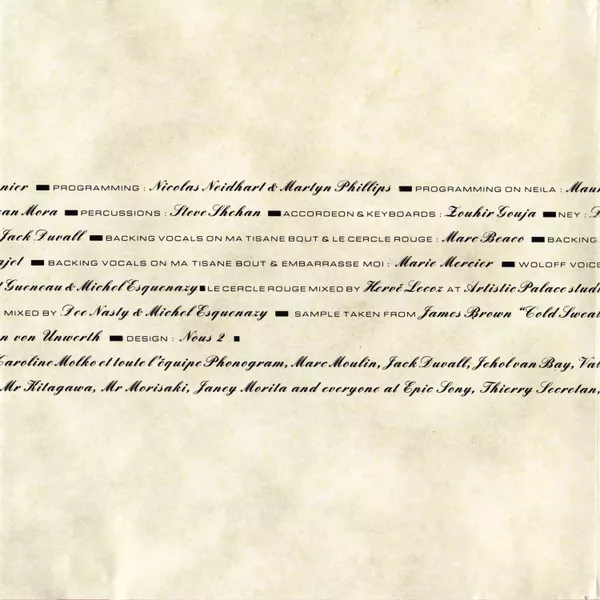 nier ▬ PROGRAMMING : Nicolas Neidhart & Martyn Phillips ▬ PROGRAMMING ON NEILA : Mau
an Mora ▬ PERCUSSIONS : Steve Shehan ▬ ACCORDEON & KEYBOARDS : Zouhir Gouja ▬ NEY :
Jack Duvall ▬ BACKING VOCALS ON MA TISANE BOUT & LE CERCLE ROUGE : Marc Beaco ▬ BACKING
ajet ▬ BACKING VOCALS ON MA TISANE BOUT & EMBARRASSE MOI : Marie Mercier ▬ WOLOFF VOICE
Gueneau & Michel Esquenazy ■ LE CERCLE ROUGE MIXED BY Hervé Lecoz AT Artistic Palace studi
MIXED BY Dee Nasty & Michel Esquenazy ▬ SAMPLE TAKEN FROM James Brown "Cold Sweat
n von Unwerth ▬ DESIGN : Nous 2 ■
Caroline Molko et toute l'équipe Phonogram, Marc Moulin, Jack Duvall, Jehol van Bay, Val
Mr Kitagawa, Mr Morisaki, Janey Morita and everyone at Epic Sony, Thierry Secretan,